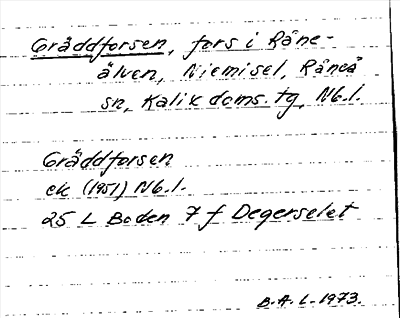 Gräddforsen, fors i Råne-
älven, Niemisel, Råneå
sn, Kalix doms. tg, Nb.l.
Gräddforsen
ek (1951) Nb.l.
25 L Boden 7 f Degerselet
B.A.L. 1973.